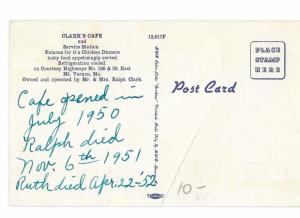 CLARK'S CAFE
and
Service Station
Famous for it's Chicken Dinners
tasty food appetizingly served
Refrigeration cooled.
on Courtesy Highways No. 166 & 39, East
Mt. Vernon, Mo.
Owned and operated by Mr. & Mrs. Ralph Clark.
Cafe opened in
July 1950
Ralph died
Nov. 6th 1951
Ruth died Apr. 22-52
Post Card
PLACE
STAMP
HERE
10-